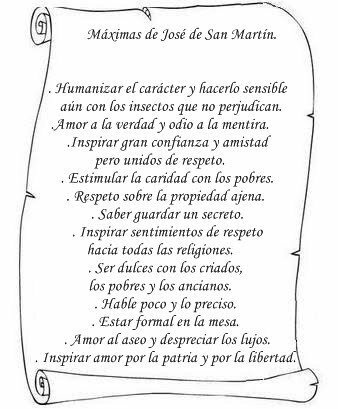 Máximas de José de San Martín.
. Humanizar el carácter y hacerlo sensible
aún con los insectos que no perjudican.
.Amor a la verdad y odio a la mentira.
.Inspirar gran confianza y amistad
pero unidos de respeto.
. Estimular la caridad con los pobres.
. Respeto sobre la propiedad ajena.
. Saber guardar un secreto.
. Inspirar sentimientos de respeto
hacia todas las religiones.
. Ser dulces con los criados,
los pobres y los ancianos.
. Hable poco y lo preciso.
. Estar formal en la mesa.
. Amor al aseo y despreciar los lujos.
. Inspirar amor por la patria y por la libertad.